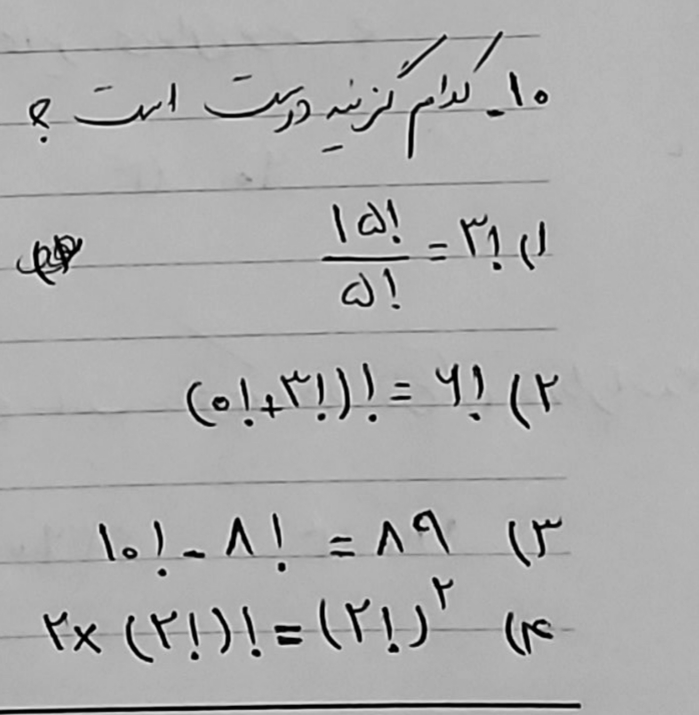 ۱۰- کدام گزینه درست است ؟
۱) ۱۵!/۵! = ۳!
۲) (۰!+۳!)! = ۶!
۳) ۱۰! - ۸! = ۸۹
۴) ۲×(۲!)! = (۲!)^۲